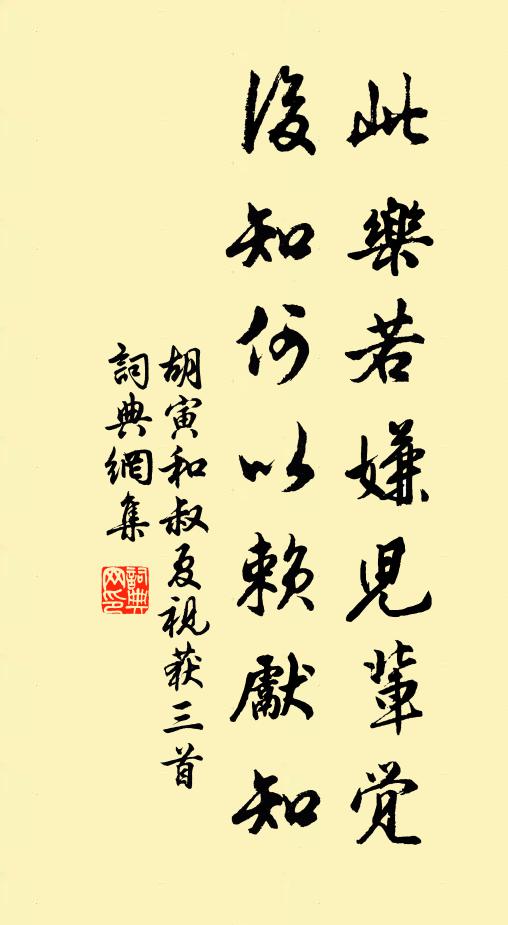 此樂若嫌児軰覚
後知何以賴獻知
胡寅和叔夏視获三首
詞典網集
詞典
网印